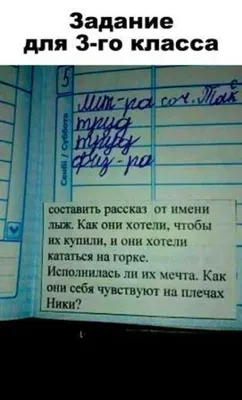 Задание
для 3-го класса
5
Сенбі / Суббота
Лит-ра соч. Так
труд
труд
физ-ра
с
составить рассказ от имени
лыж. Как они хотели, чтобы
их купили, и они хотели
кататься на горке.
Исполнилась ли их мечта. Как
они себя чувствуют на плечах
Ники?